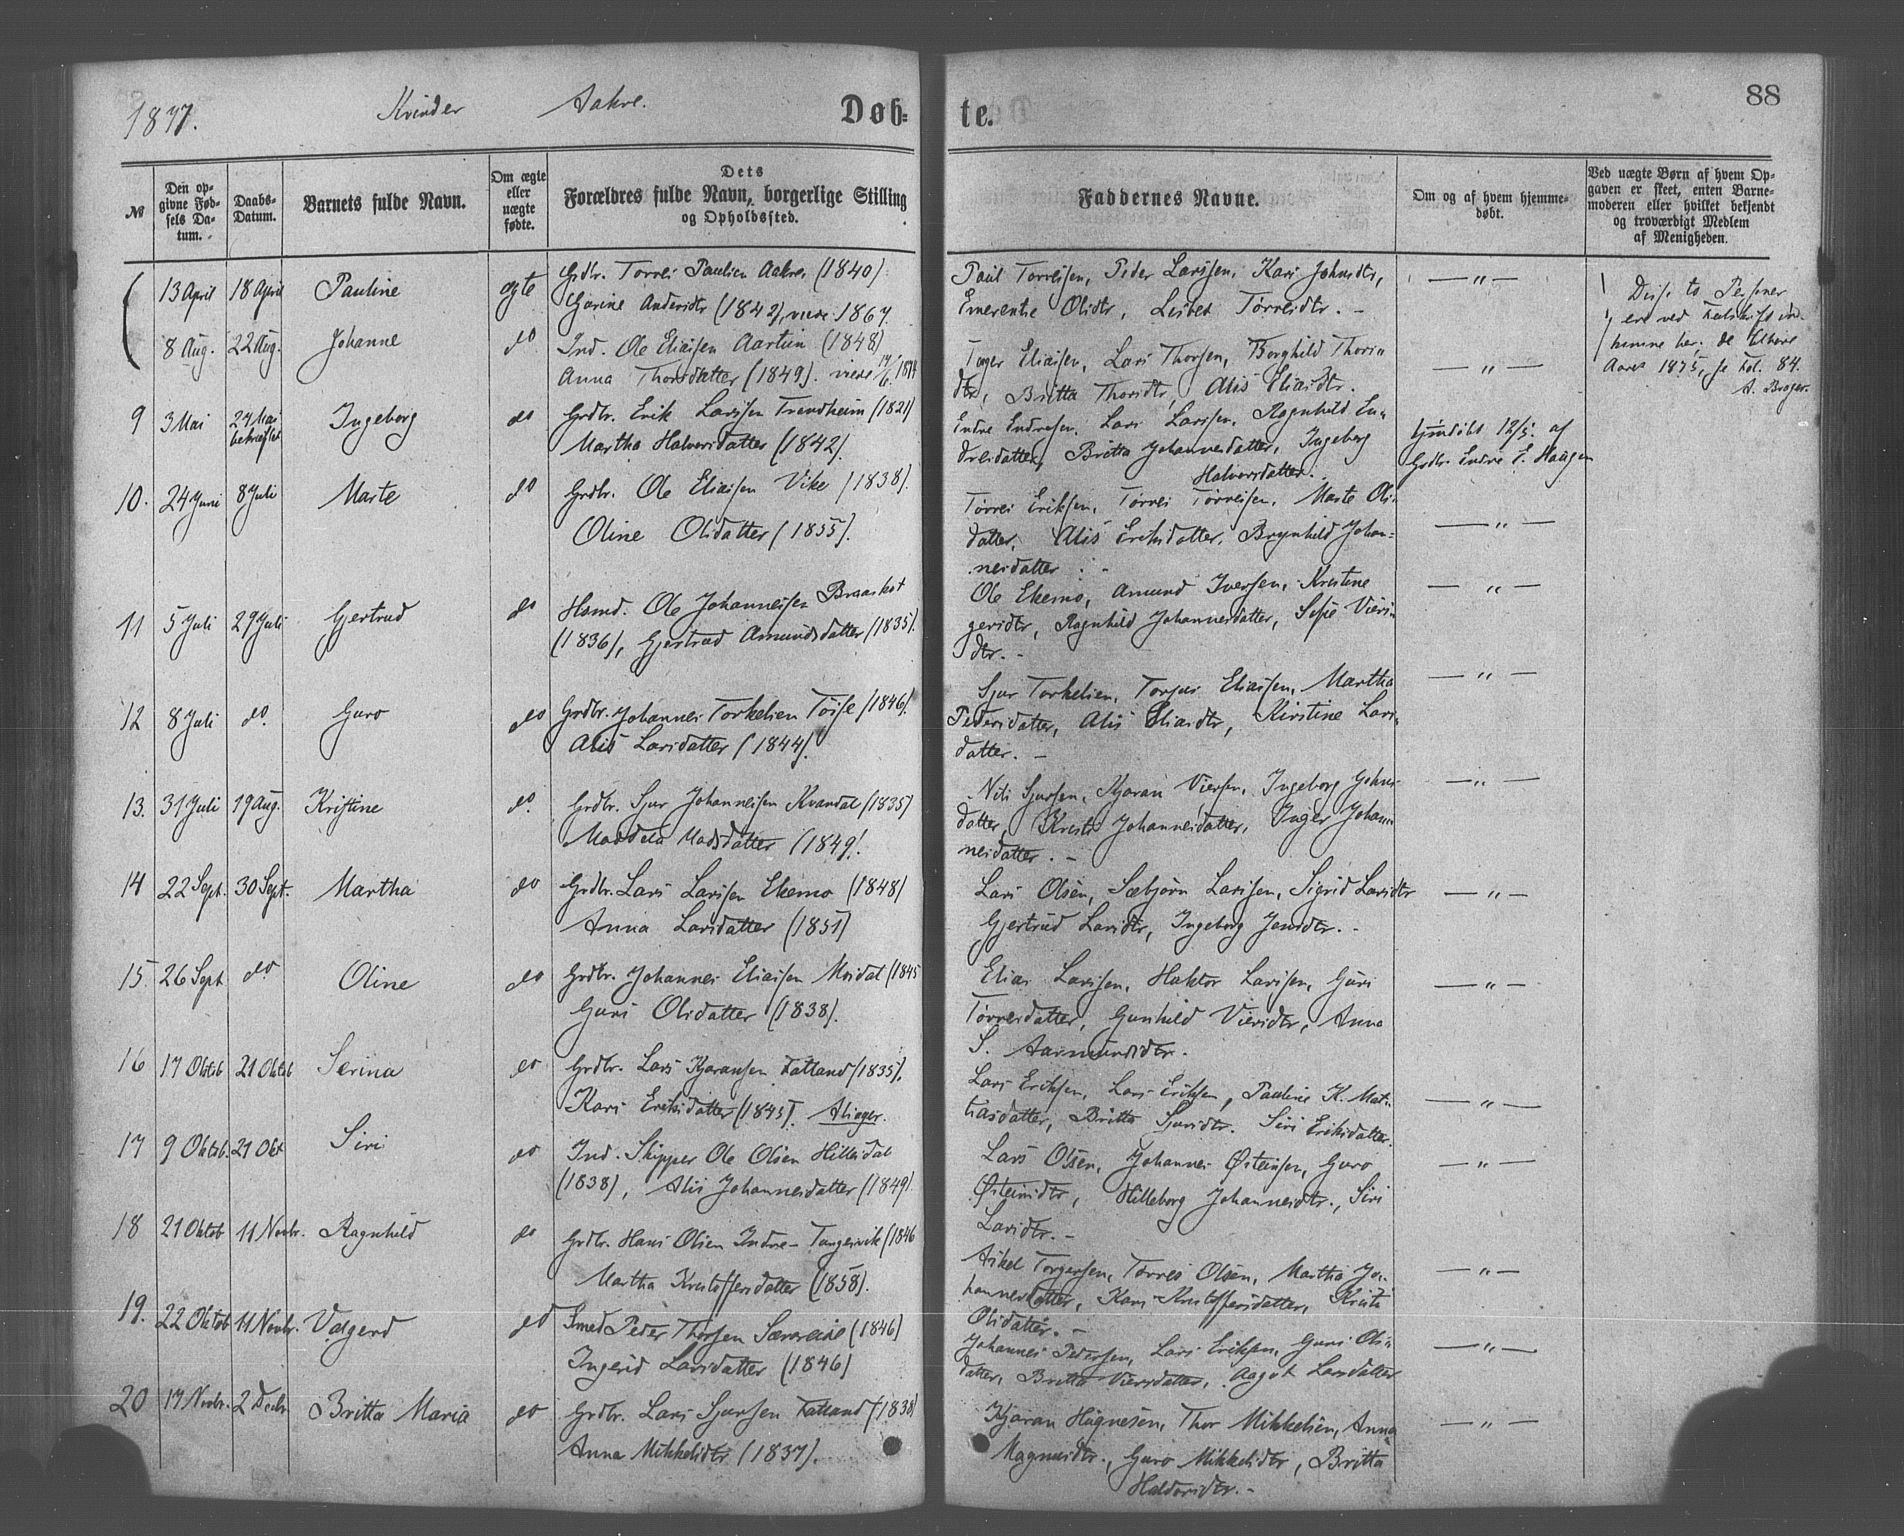 1877. Kvinder Aakre. Døb- te. 88
№
Den opgivne Fødsels Datum.
Daabs-Datum.
Barnets fulde Navn.
Om ægte eller uægte fødte.
Dets Forældres fulde Navn, borgerlige Stilling og Opholdssted.
Faddernes Navne.
Om og af hvem hjemmedøbt.
Ved uægte Børn af hvem Opgaven er skeet, enten Barnemoderen eller hvilket bekjendt og troværdigt Medlem af Menigheden.
13 April 18 April Pauline ægte Grdbr. Torrei Paulsen Aakre (1840)
Gurine Andersdtr (1842), viede 1867.
Paul Torreisen, Peder Larssen, Kari Johnsdtr,
Emerentse Olsdtr, Lisbet Torreisdtr. -
— " —
8 Aug. 22 Aug. Johanne do Ind. Ole Eliassen Aartun (1848)
Anna Thorsdatter (1849). viede 14/6. 1874
Tøger Eliassen, Lars Thorsen, Borghild Thors-
dtr, Britta Thorsdtr, Alis Eliasdtr.
— " —
Disse to Personer
ere ved
henne her. de tilhøre
Aaret 1875, se Fol. 84.
A. Brager.
9 3 Mai 27 Mai bekræftet Ingeborg do Grdbr. Erik Larssen Trendheim (1821)
Martha Halvorsdatter (1842).
Endre Endresen, Lars Larssen, Ragnhild En-
dresdatter, Britta Johannesdatter, Ingeborg
Halvorsdatter.
hjemdøbt 12/5. af
Grdbr. Endre E. Haugen
10. 24 Juni 8 Juli Marte do Grdbr. Ole Eliassen Vike (1838).
Oline Olsdatter (1855).
Torrei Eriksen, Torrei Torreisen, Marte Ols-
datter, Alis Eriksdatter, Brynhild Johan-
nesdatter. -
— " —
11 5 Juli 29 Juli Gjertrud do Husmd. Ole Johannessen Braakot
(1836), Gjertrud Amundsdatter (1835).
Ole Ekemo, Amund Iversen, Kristine
gersdtr, Ragnhild Johannesdatter, Sofie Viers-
dtr. -
— " —
12 8 Juli do. Guro do Grdbr. Johannes Torkelsen Tøsse (1846).
Alis Larsdatter (1844).
Sjur Torkelsen, Torjus Eliassen, Martha
Pedersdatter, Alis Eliasdtr, Kirstine Lars-
datter. -
— " —
13. 31 Juli 19 Aug. Kristine do. Grdbr. Sjur Johannessen Kvandal (1835)
Maddela Madsdatter (1849).
Nils Sjursen, Kjaran Viersen, Ingeborg Johns-
datter, Kristi Johannesdatter, Inger Johan-
nesdatter. -
— " —
14 22 Sept. 30 Sept. Martha do Grdbr. Lars Larssen Ekemo (1848)
Anna Larsdatter (1851)
Lars Olsen, Sæbjørn Larssen, Sigrid Larsdtr
Gjertrud Larsdtr, Ingeborg Jensdtr. -
— " —
15. 26 Sept do Oline do Grdbr. Johannes Eliassen Mosdal (1845
Guri Olsdatter (1838).
Elias Larssen, Haktor Larssen, Guri
Torreisdatter, Gunhild Viersdtr, Anna
S. Aasmundsdtr.
— " —
16 17 Oktob 21 Oktob Serina do Grdbr. Lars Kjaransen Fatland (1835).
Kari Eriksdatter (1845).
Lars Eriksen, Lars Eriksen, Pauline K. Mat-
hiasdatter, Britta Sjursdtr. Siri Eriksdatter.
— " —
17 9 Oktob. 21 Okt Siri do Ind. Skipper Ole Olsen Hillesdal
(1838), Alis Johannesdatter (1849).
Lars Olsen, Johannes Østensen, Guro
Østensdtr, Hilleborg Johannesdtr., Siri
Larsdtr. -
— " —
18 21 Oktob 11 Novbr. Ragnhild do Grdbr. Hans Olsen Indre-Tungesvik (1846
Martha Kristoffersdatter (1858).
Askel Torgersen, Torres Olsen, Martha Jo-
hannesdatter, Kari Kristoffersdatter, Kristi
Olsdatter. -
— " —
19. 22 Oktob 11 Novbr. Valgerd do Smed Peder Thorsen Særereide (1846)
Ingerid Larsdatter (1846)
Johannes Pedersen, Lars Eriksen, Guri Ols-
datter, Britta Viersdatter, Aagot Larsdatter
— " —
20 17 Novbr. 2 Decbr Britta Maria do Grdbr. Lars Sjursen Fatland (1838)
Anna Mikkelsdtr (1837).
Kjaran Høgnesen, Thor Mikkelsen, Anna
Magnusdtr., Guro Mikkelsdtr, Britta
Haldorsdtr. -
— " —